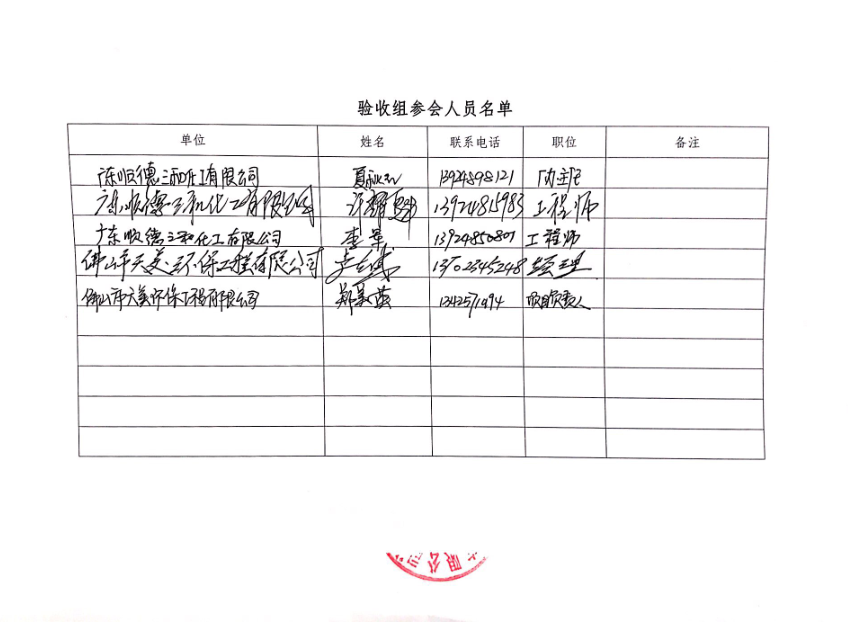 验收组参会人员名单
单位 姓名 联系电话 职位 备注
广东顺德三和化工有限公司 夏 13924898121
广东顺德三和化工有限公司 许 13924815983 工程师
广东顺德三和化工有限公司 李军 13924850807 工程师
佛山市天美环保工程有限公司 13702345248 经理
佛山市天美环保工程有限公司 郑 项目负责人
有限公司